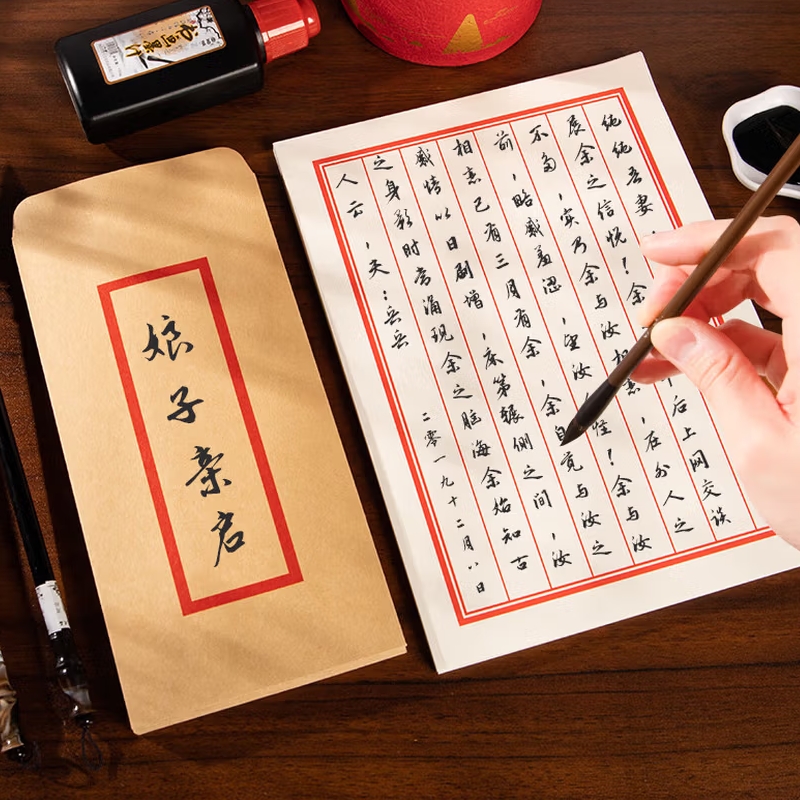 娘子亲启
纯纯吾妻，
展余之信悦！余后上网交谈
不多，实乃余与汝相悉，在外人之
前，略感羞涩，望汝怪！余与汝
相悉已有三月有余，余自觉与汝之
感情以日剧增，床第辗侧之间，汝
之身影时常涌现余之脑海余始知古
人云，夫：岳岳
二零一九十二月八日